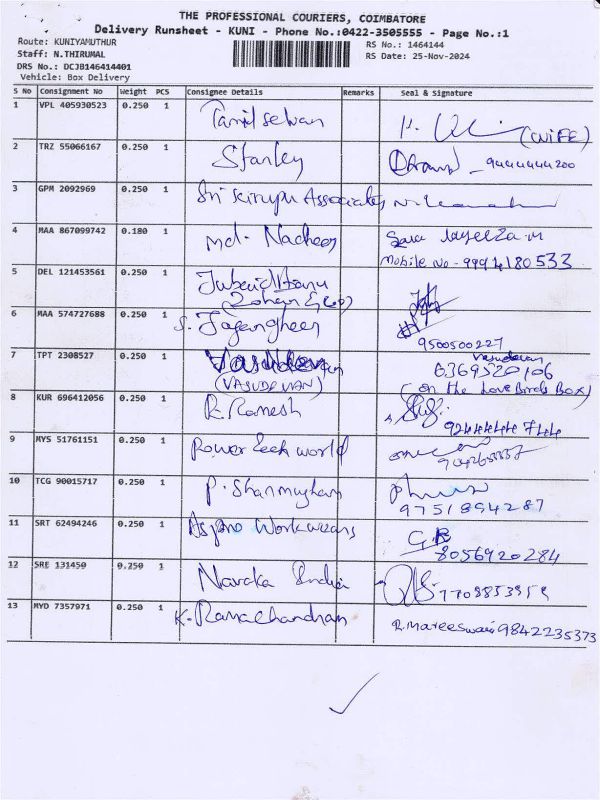 THE PROFESSIONAL COURIERS, COIMBATORE
Delivery Runsheet - KUNI - Phone No.:0422-3505555 - Page No.:1
Route: KUNIYAMUTHUR
Staff: N.THIRUMAL
DRS No.: DCJB146414401
Vehicle: Box Delivery
RS No.: 1464144
RS Date: 25-Nov-2024
S No Consignment No Weight PCS Consignee Details Remarks Seal & Signature
1 VPL 405930523 0.250 1 Tamilselvan (WIFE)
2 TRZ 55066167 0.250 1 Stanley 9444444200
3 GPM 2092969 0.250 1 Sri Kirupa Associates
4 MAA 867099742 0.180 1 Md. Nadheer
Mobile No - 9994180533
5 DEL 121453561 0.250 1
6 MAA 574727688 0.250 1 S. Jagangheer
9500500227
7 TPT 2308527 0.250 1 Vasudevan
(VASUDEVAN) 6369520106
(on the Love Birds Box)
8 KUR 696412056 0.250 1 R. Ramesh
9244444744
9 MYS 51761151 0.250 1 Power Tech world
10 TCG 90015717 0.250 1 P. Shanmugham
9751894287
11 SRT 62494246 0.250 1 Aspro Workwears
8056920284
12 SRE 131450 0.250 1 Naraka India 7708853959
13 MYD 7357971 0.250 1 K. Ramachandran R. Mareeswari 9842235373